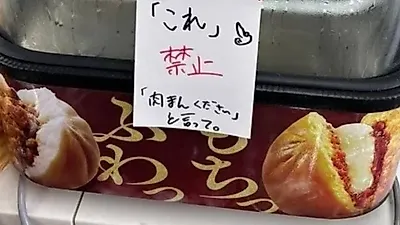 「これ」
禁止
「肉まんください」
と言って。
もちっ
ふわっ